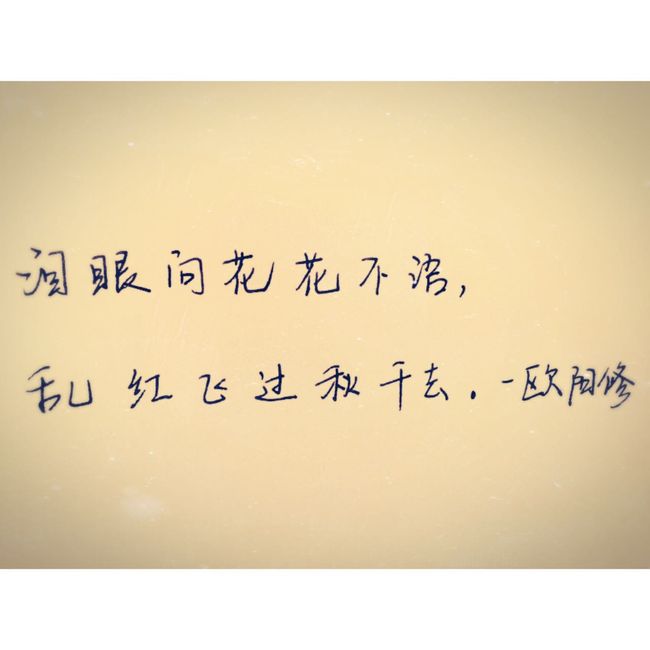 泪眼问花花不语，
乱红飞过秋千去。-欧阳修